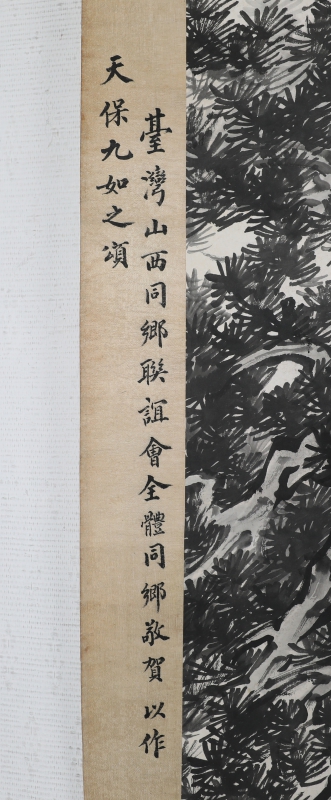 臺灣山西同鄉聯誼會全體同鄉敬賀 以作
天保九如之頌